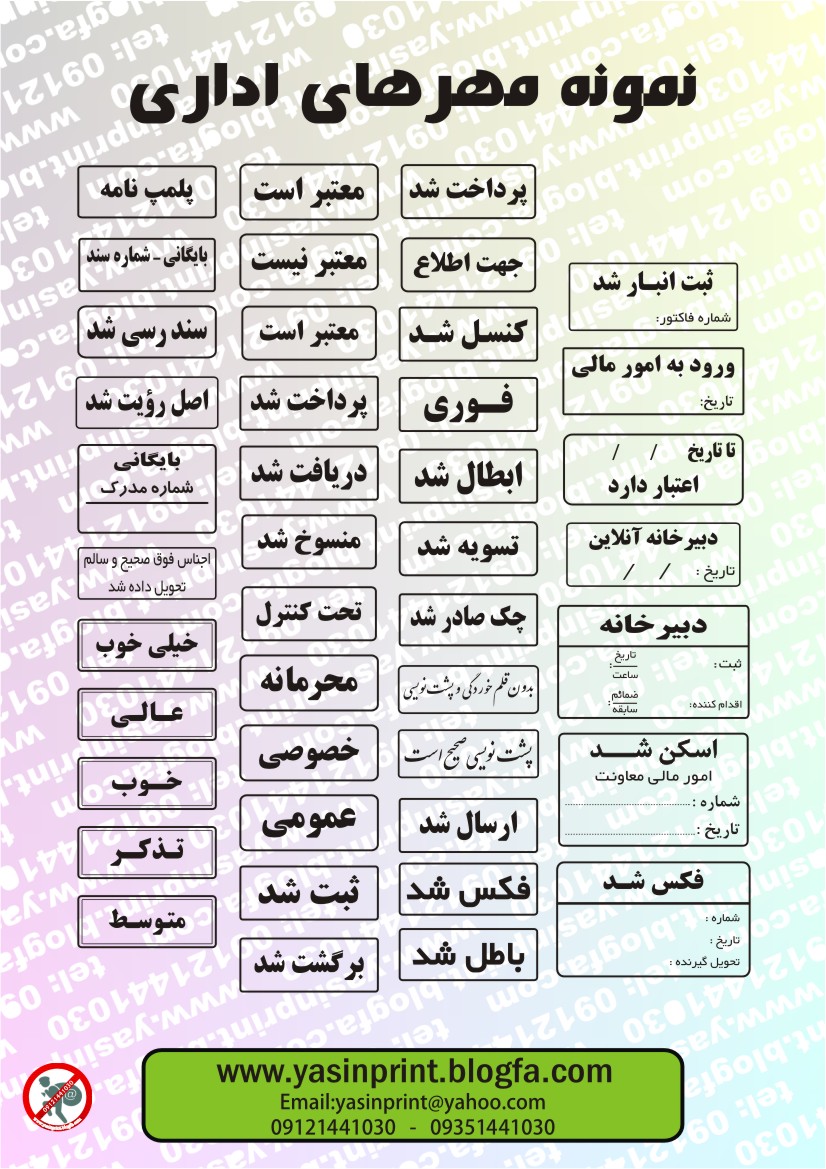 نمونه مهرهای اداری
پرداخت شد
جهت اطلاع
کنسل شد
فوری
ابطال شد
تسویه شد
چک صادر شد
بدون قلم خوردگی و پشت نویسی
پشت نویسی صحیح است
ارسال شد
فکس شد
باطل شد
ثبت انبار شد
شماره فاکتور:
ورود به امور مالی
تاریخ:
تا تاریخ / /
اعتبار دارد
دبیرخانه آنلاین
تاریخ : / /
دبیرخانه
ثبت :
تاریخ
ساعت :
اقدام کننده:
ضمائم
سابقه :
اسکن شد
امور مالی معاونت
شماره :
تاریخ :
فکس شد
شماره :
تاریخ :
تحویل گیرنده :
معتبر است
معتبر نیست
معتبر است
پرداخت شد
دریافت شد
منسوخ شد
تحت کنترل
محرمانه
خصوصی
عمومی
ثبت شد
برگشت شد
پلمپ نامه
بایگانی - شماره سند
سند رسی شد
اصل رؤیت شد
بایگانی
شماره مدرک
اجناس فوق صحیح و سالم
تحویل داده شد
خیلی خوب
عالی
خوب
تذکر
متوسط
www.yasinprint.blogfa.com
Email:yasinprint@yahoo.com
09121441030 - 09351441030
09121441030